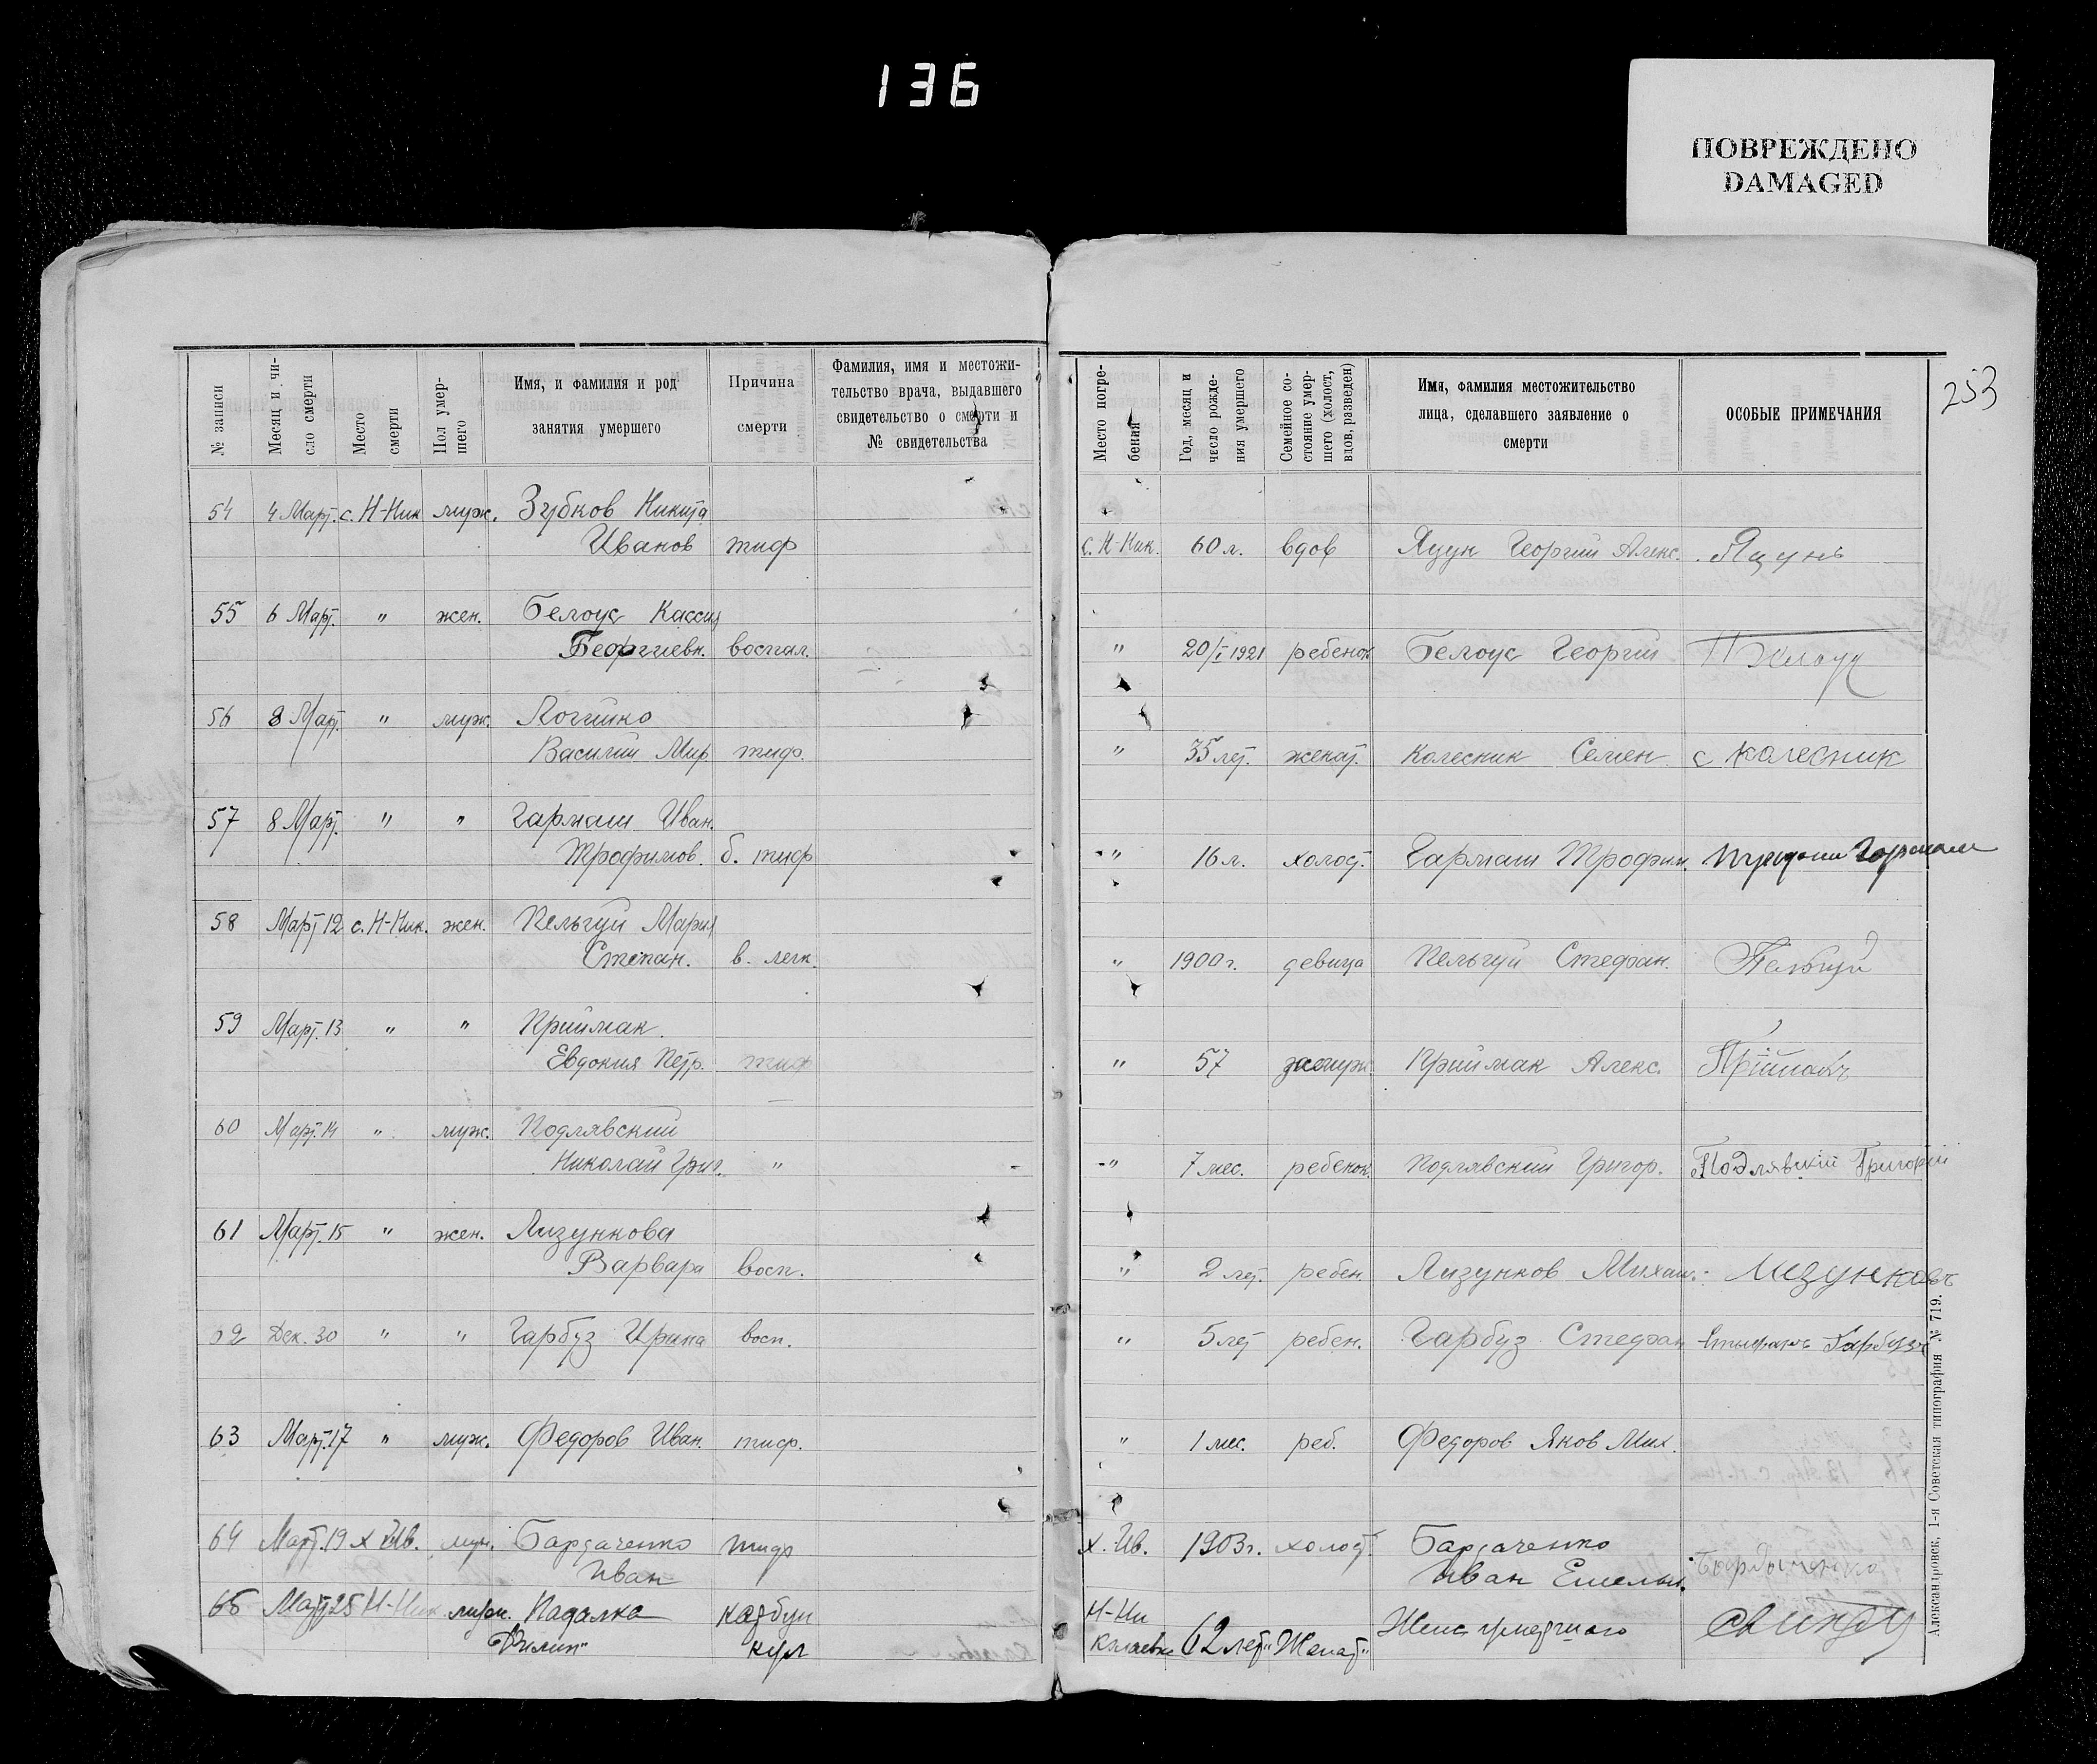 136
ПОВРЕЖДЕНО
DAMAGED
253
№ записи
Месяц и чи-
сло смерти
Место
смерти
Пол умер-
шего
Имя, и фамилия и род
занятия умершего
Причина
смерти
Фамилия, имя и местожи-
тельство врача, выдавшего
свидетельство о смерти и
№ свидетельства
Место погре-
бения
Год, месяц и
число рожде-
ния умершего
Семейное со-
стояние умер-
шего (холост,
вдов, разведен)
Имя, фамилия местожительство
лица, сделавшего заявление о
смерти
ОСОБЫЕ ПРИМЕЧАНИЯ
54 4 Март. с. Н-Ник муж. Зубков Никита
Иванов тиф с. Н-Ник. 60 л. вдов Яцун Георгий Алекс. Яцунь
55 6 Март. " жен. Белоус Кассия
Георгиевн. воспал. " 20/I 1921 ребенок Белоус Георгий
56 8 Март. " муж. Логгинко
Василий Мир. тиф. " 35 лет. женат. Колесник Семен с колесник
57 8 Март. " " Гармаш Иван.
Трофимов. б. тиф " 16 л. холост. Гармаш Трофим. Гармаш
58 Март 12 с. Н-Ник. жен. Пельгуй Мария
Степан. в. легк. " 1900 г. девица Пельгуй Стефан.
59 Март. 13 " " Приймак
Евдокия Петр. тиф " 57 замуж. Приймак Алекс. Пріймакъ
60 Март. 14 " муж. Подлявский
Николай Григ. " " 7 мес. ребенок. Подлявский Григор. Подлявскій Григорій
61 Март. 15 " жен. Лизункова
Варвара восп. " 2 лет. ребен. Лизунков Михаил. Лизунковъ
62 Дек. 30 " " Гарбуз Ирина восп. " 5 лет ребен. Гарбуз Стефан Гарбузъ
63 Март. 17 " муж. Федоров Иван. тиф. " 1 мес. реб. Федоров Яков Мих.
64 Март. 19 х Ив. муж. Бардаченко тиф х. Ив. 1903 г. холост. Бардаченко
Иван Иван Емельян.
65 Март 25 Н-Ник муж. Падалка карбун Н-Ни
Филип" кул колаевке 62 лет" Женат" Жена умершаго
Александровск, 1-я Советская типография № 719.